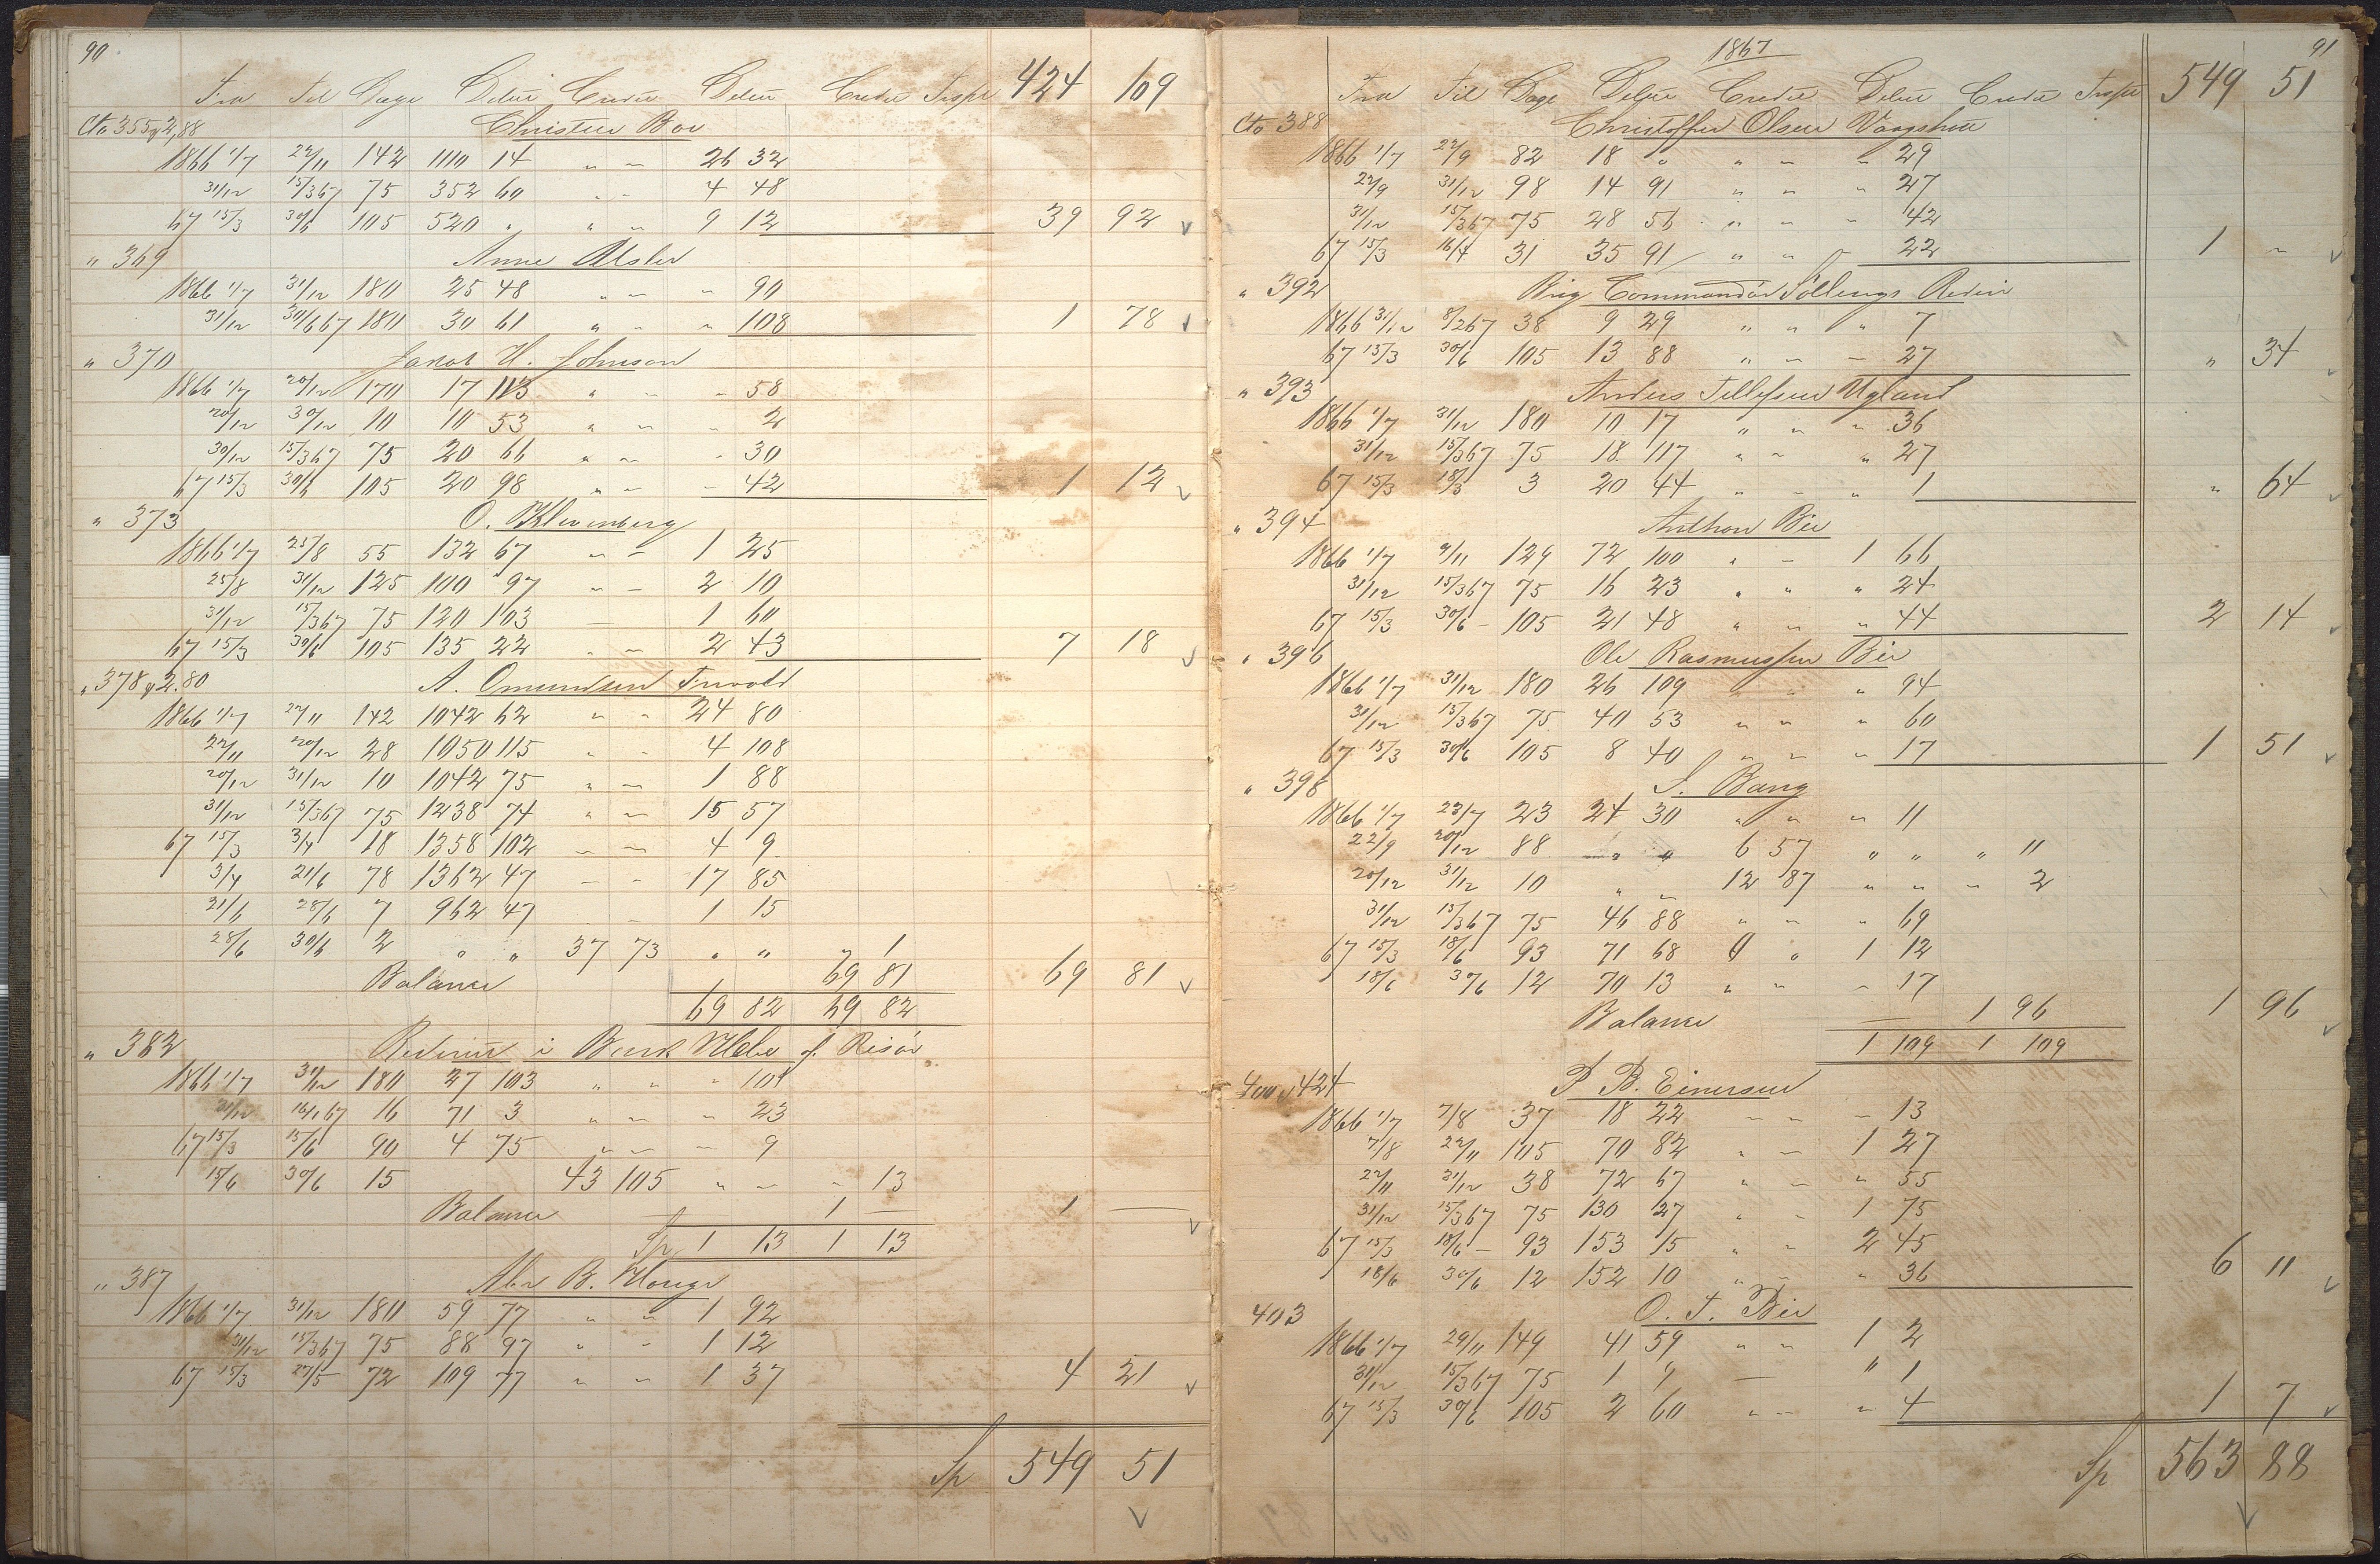 90
Fra Til Dage Debet Credit Debet Credit Trspt 424 109
Cto 355 & 2,88 Christen Boe
1866 1/7 22/11 142 1110 14 " " 26 32
31/12 15/3 67 75 352 60 " " 4 48
67 15/3 30/6 105 520 " " " 9 12 39 92 √
" 369 Anne
1866 1/7 31/12 180 25 48 " " " 90
31/12 30/6 67 180 30 61 " " " 108 1 78 √
" 370 Jakob H. Johnson
1866 1/7 20/12 170 17 113 " " " 58
20/12 30/12 10 10 53 " " " 2
30/12 15/3 67 75 20 66 " " " 30
67 15/3 30/6 105 20 98 " " " 42 1 12 √
" 373 O.
1866 1/7 25/8 55 132 67 " " 1 25
25/8 31/12 125 100 97 " " 2 10
31/12 15/3 67 75 120 103 — 1 60
67 15/3 30/6 105 135 22 " " 2 43 7 18 √
" 378 & 2.80 A. Omundsen
1866 1/7 22/11 142 1042 62 " " 24 80
22/11 20/12 28 1050 115 " " 4 108
20/12 31/12 10 1042 75 " " 1 88
31/12 15/3 67 75 1238 74 " " 15 57
67 15/3 3/4 18 1358 102 " " 4 9
3/4 21/6 78 1362 47 " " 17 85
21/6 28/6 7 962 47 " " 1 15
28/6 30/6 2 " " 37 73 " " " 1
Balance 69 81 69 81 √
69 82 69 82
" 382 Rederiet i Bark Hebe af Risør
1866 1/7 31/12 180 27 103 " " " 101
31/12 16/1 67 16 71 3 " " " 23
67 15/3 15/6 90 4 75 " " " 9
15/6 30/6 15 43 105 " " " 13
Balance — 1 — 1 — √
Sp 1 13 1 13
" 387 Abr B. Houge
1866 1/7 31/12 180 59 77 " " 1 92
31/12 15/3 67 75 88 97 " " 1 12
67 15/3 27/5 72 109 77 " " 1 37 4 21 √
Sp 549 51
√
1867 91
Fra Til Dage Debet Credit Debet Credit Trspt 549 51
Cto 388 Christoffer Olsen
1866 1/7 22/9 82 18 " " " " 29
22/9 31/12 98 14 91 " " " 27
31/12 15/3 67 75 28 56 " " " 42
67 15/3 16/4 31 35 91 " " " 22 1 " √
" 392 Brig Commandør Søllings Rederi
1866 31/12 8/2 67 38 9 29 " " " 7
67 15/3 30/6 105 13 88 " " " 27 " 34 √
" 393 Anders Tellefsen Ugland
1866 1/7 31/12 180 10 17 " " " 36
31/12 15/3 67 75 18 117 " " " 27
67 15/3 18/3 3 20 44 " " " 1 " 64 √
" 394 Anthon Bie
1866 1/7 9/11 129 72 100 " " 1 66
31/12 15/3 67 75 16 23 " " " 24
67 15/3 30/6 105 21 48 " " " 44 2 14 √
" 396 Ole Rasmussen Bie
1866 1/7 31/12 180 26 109 " " " 94
31/12 15/3 67 75 40 53 " " " 60
67 15/3 30/6 105 8 40 " " " 17 1 51 √
" 398 S. Bang
1866 1/7 23/7 23 24 30 " " " 11
22/9 20/12 88 " " 6 57 " " " 11
20/12 31/12 10 " " 12 87 " " " 2
31/12 15/3 67 75 46 88 " " " 69
67 15/3 18/6 93 71 68 " " 1 12
18/6 30/6 12 70 13 " " " 17
Balance — 1 96 1 96 √
1 109 1 109
400 & 424 P B. Einersen
1866 1/7 7/8 37 18 22 " " " 13
7/8 22/11 105 70 82 " " 1 27
22/11 31/12 38 72 67 " " " 55
31/12 15/3 67 75 130 27 " " 1 75
67 15/3 18/6 93 153 15 " " 2 45
18/6 30/6 12 152 10 " " " 36 6 11 √
403 O. T. Bie
1866 1/7 29/11 149 41 59 " " 1 2
31/12 15/3 67 75 1 9 — " 1
67 15/3 30/6 105 2 60 " " " 4 1 7 √
Sp 563 88